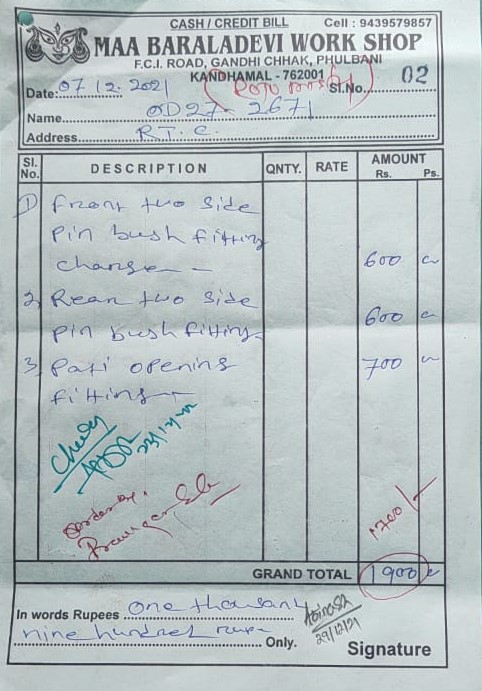 CASH / CREDIT BILL Cell : 9439579857
MAA BARALADEVI WORK SHOP
F.C.I. ROAD, GANDHI CHHAK, PHULBANI
KANDHAMAL - 762001
Date: 07/12.2021 Sl.No. 02
Name OD27-2671
Address R.T.C.
Sl. No. DESCRIPTION QNTY. RATE AMOUNT Rs. Ps.
1 Front two side
pin bush fitting
change - 600
2, Rear two side
pin bush fitting 600
3, Pati opening 700
fitting
1700/-
GRAND TOTAL 1900
In words Rupees one thousany
nine hundred Only.
29/12/21
Signature